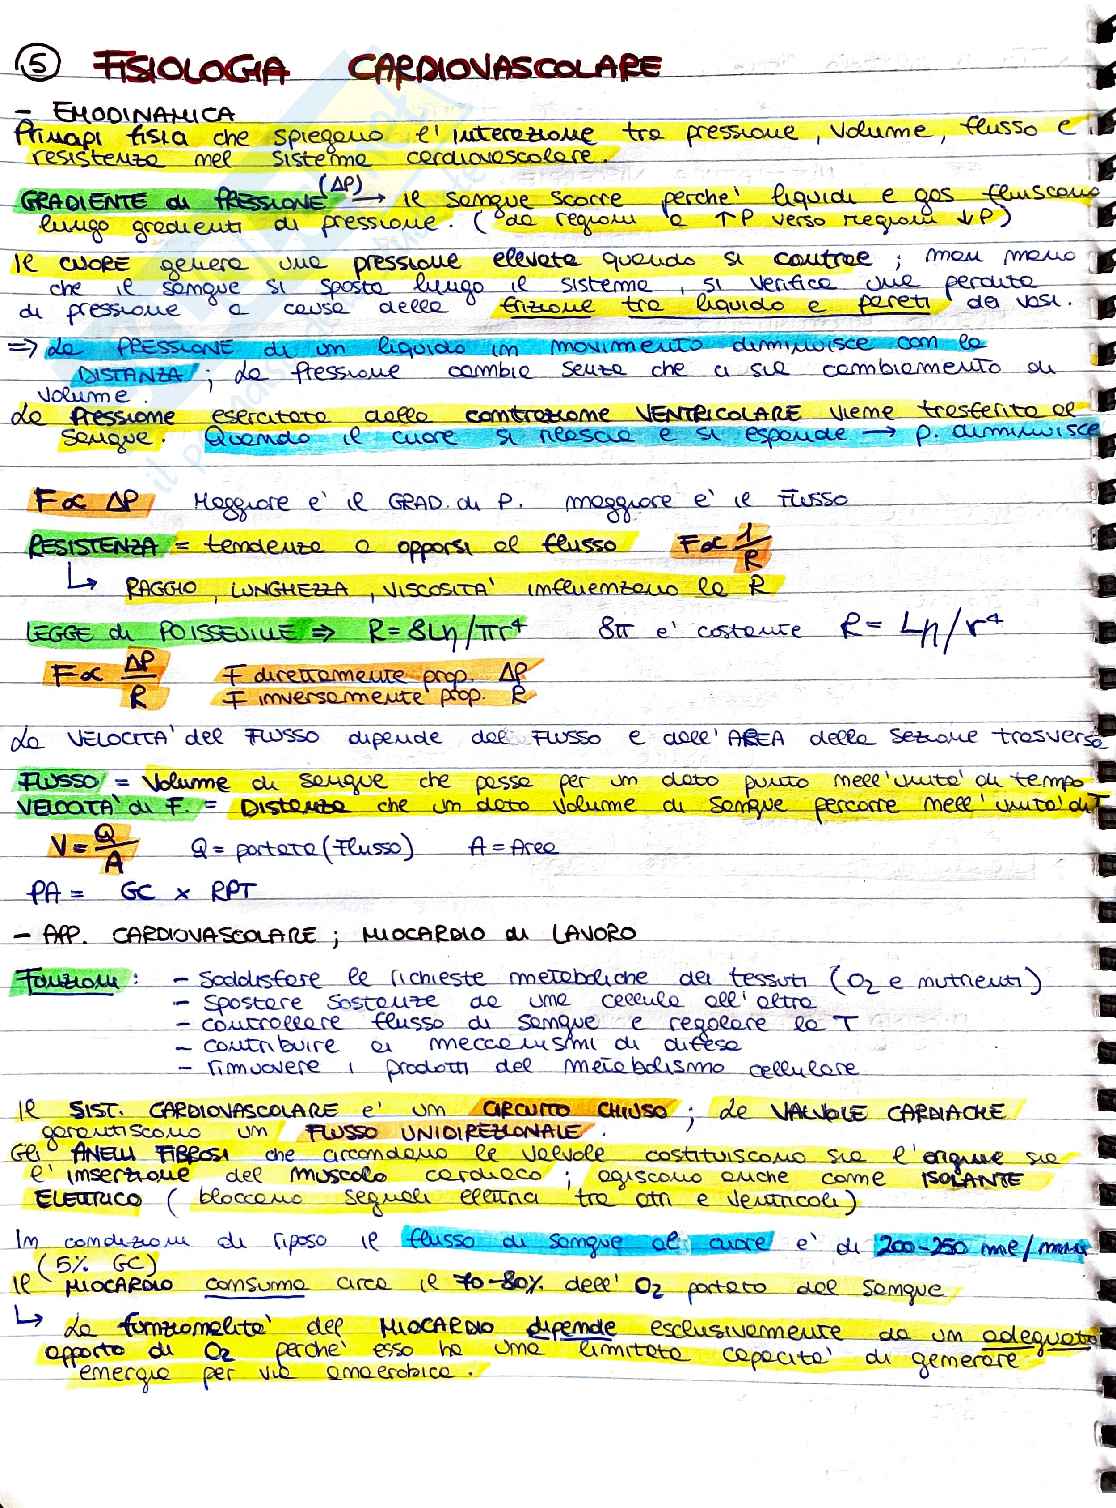 5 FISIOLOGIA CARDIOVASCOLARE
- EMODINAMICA
Principi fisici che spiegano l'interazione tra pressione, volume, flusso e
resistenza nel sistema cardiovascolare.
GRADIENTE di PRESSIONE (ΔP) → il sangue scorre perche' liquidi e gas fluiscono
lungo gradienti di pressione. (da regioni a ↑P verso regioni ↓P)
Il CUORE genera una pressione elevata quando si contrae; man mano
che il sangue si sposta lungo il sistema, si verifica una perdita
di pressione a causa della frizione tra liquido e pareti dei vasi.
⇒ La PRESSIONE di un liquido in movimento diminuisce con la
DISTANZA; La pressione cambia senza che ci sia cambiamento di
volume.
La Pressione esercitata dalla contrazione VENTRICOLARE viene trasferita al
sangue. Quando il cuore si rilascia e si espande → p. diminuisce
F ∝ ΔP Maggiore e' il GRAD. di P. maggiore e' il FLUSSO
RESISTENZA = tendenza a opporsi al flusso F ∝ 1/R
↳ RAGGIO, LUNGHEZZA, VISCOSITA' influenzano la R
LEGGE di POISSEUILLE ⇒ R = 8Lη/πr⁴ 8π e' costante R = Lη/r⁴
F ∝ ΔP/R F direttamente prop. ΔP
F inversamente prop. R
La VELOCITA' del FLUSSO dipende dal FLUSSO e dall'AREA della sezione trasversa
FLUSSO = Volume di sangue che passa per un dato punto nell'unita' di tempo
VELOCITA' di F. = Distanza che un dato volume di sangue percorre nell'unita' di T
V = Q/A Q = portata (Flusso) A = Area
PA = GC × RPT
- APP. CARDIOVASCOLARE; MIOCARDIO di LAVORO
Funzioni: - Soddisfare le richieste metaboliche dei tessuti (O₂ e nutrienti)
- Spostare sostanze da una cellula all'altra
- controllare flusso di sangue e regolare la T
- contribuire ai meccanismi di difesa
- rimuovere i prodotti del metabolismo cellulare
Il SIST. CARDIOVASCOLARE e' un CIRCUITO CHIUSO; Le VALVOLE CARDIACHE
garantiscono un FLUSSO UNIDIREZIONALE.
Gli ANELLI FIBROSI che circondano le valvole costituiscono sia l'origine sia
l'inserzione del muscolo cardiaco; agiscono anche come ISOLANTE
ELETTRICO (bloccano segnali elettrici tra atri e ventricoli)
In condizioni di riposo il flusso di sangue al cuore e' di 200-250 ml/min
(5% GC)
Il MIOCARDIO consuma circa il 70-80% dell'O₂ portato dal sangue
↳ La funzionalita' del MIOCARDIO dipende esclusivamente da un adeguato
apporto di O₂ perche' esso ha una limitata capacita' di generare
energia per via anaerobica.